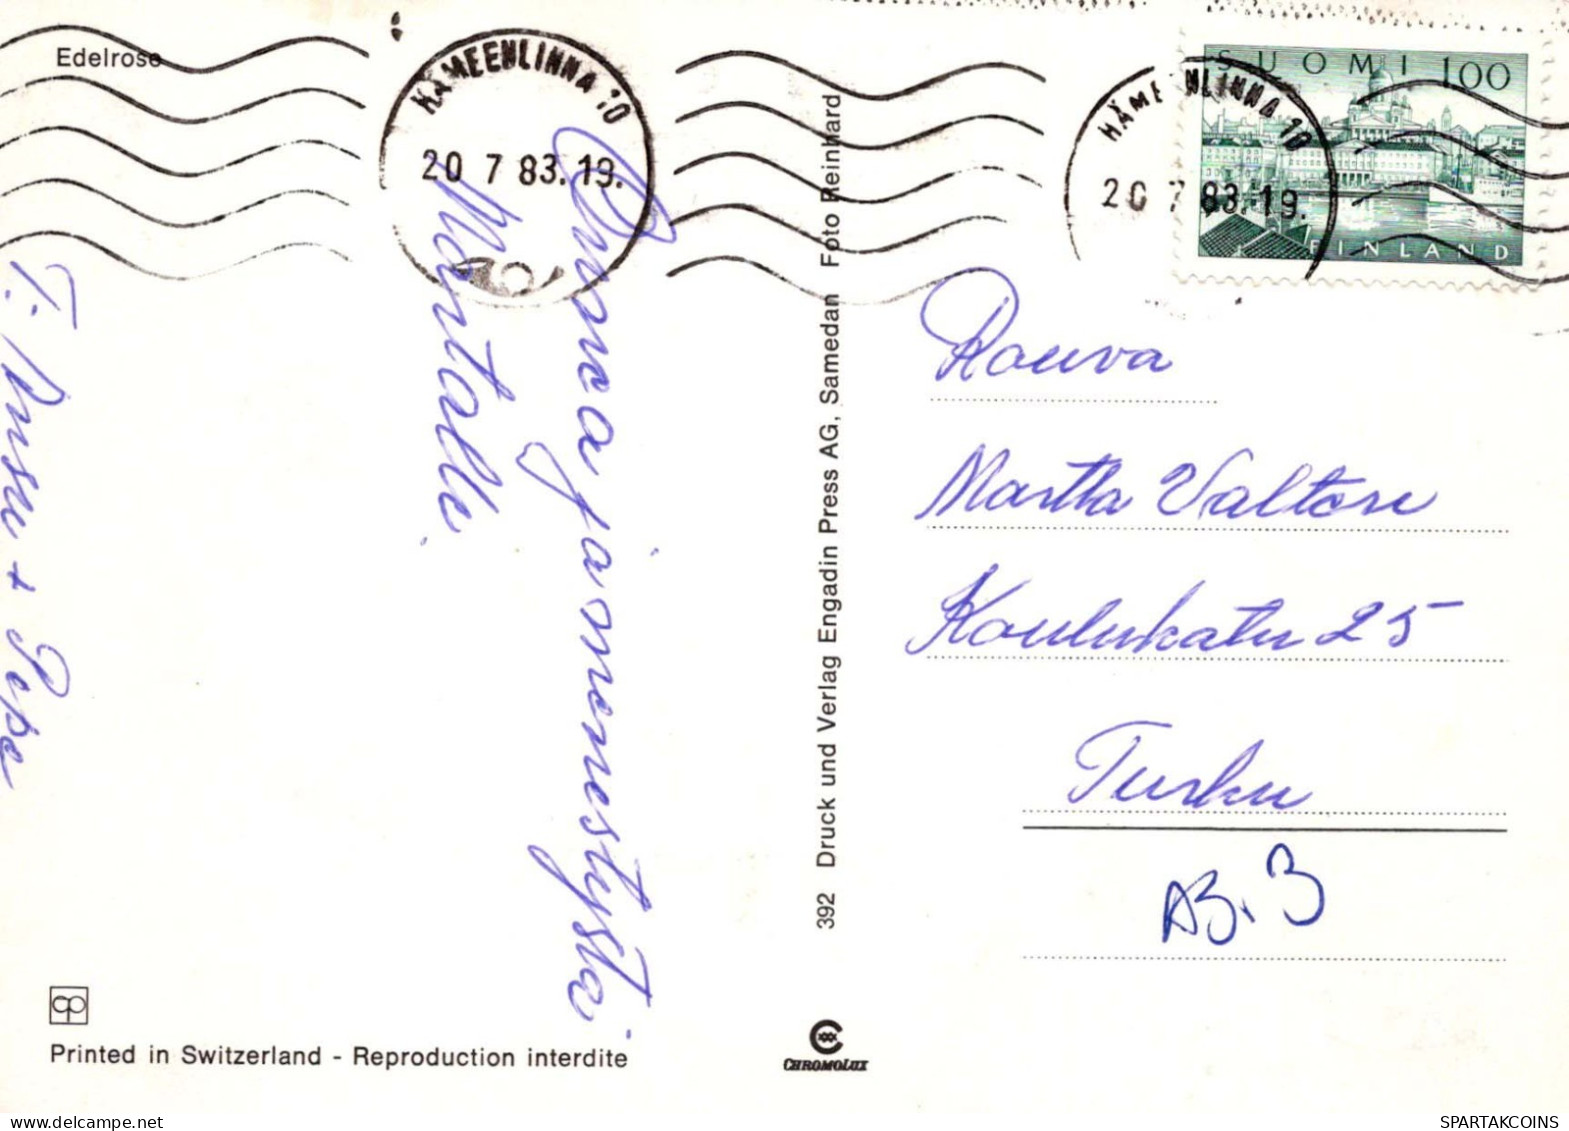 Edelrose
HÄMEENLINNA 10
20 7 83.19.
HÄMEENLINNA 10
20 7 83.19.
SUOMI 100
FINLAND
Onnea ja menestystä
Martalle.
T:
+ Pepe
392 Druck und Verlag Engadin Press AG, Samedan Foto Reinhard
Rouva
Martta Valtari
Koulukatu 25
Turku
AB. B
cp
Printed in Switzerland - Reproduction interdite
CHROMOLUX
SPARTAKCOINS
delcampe.net